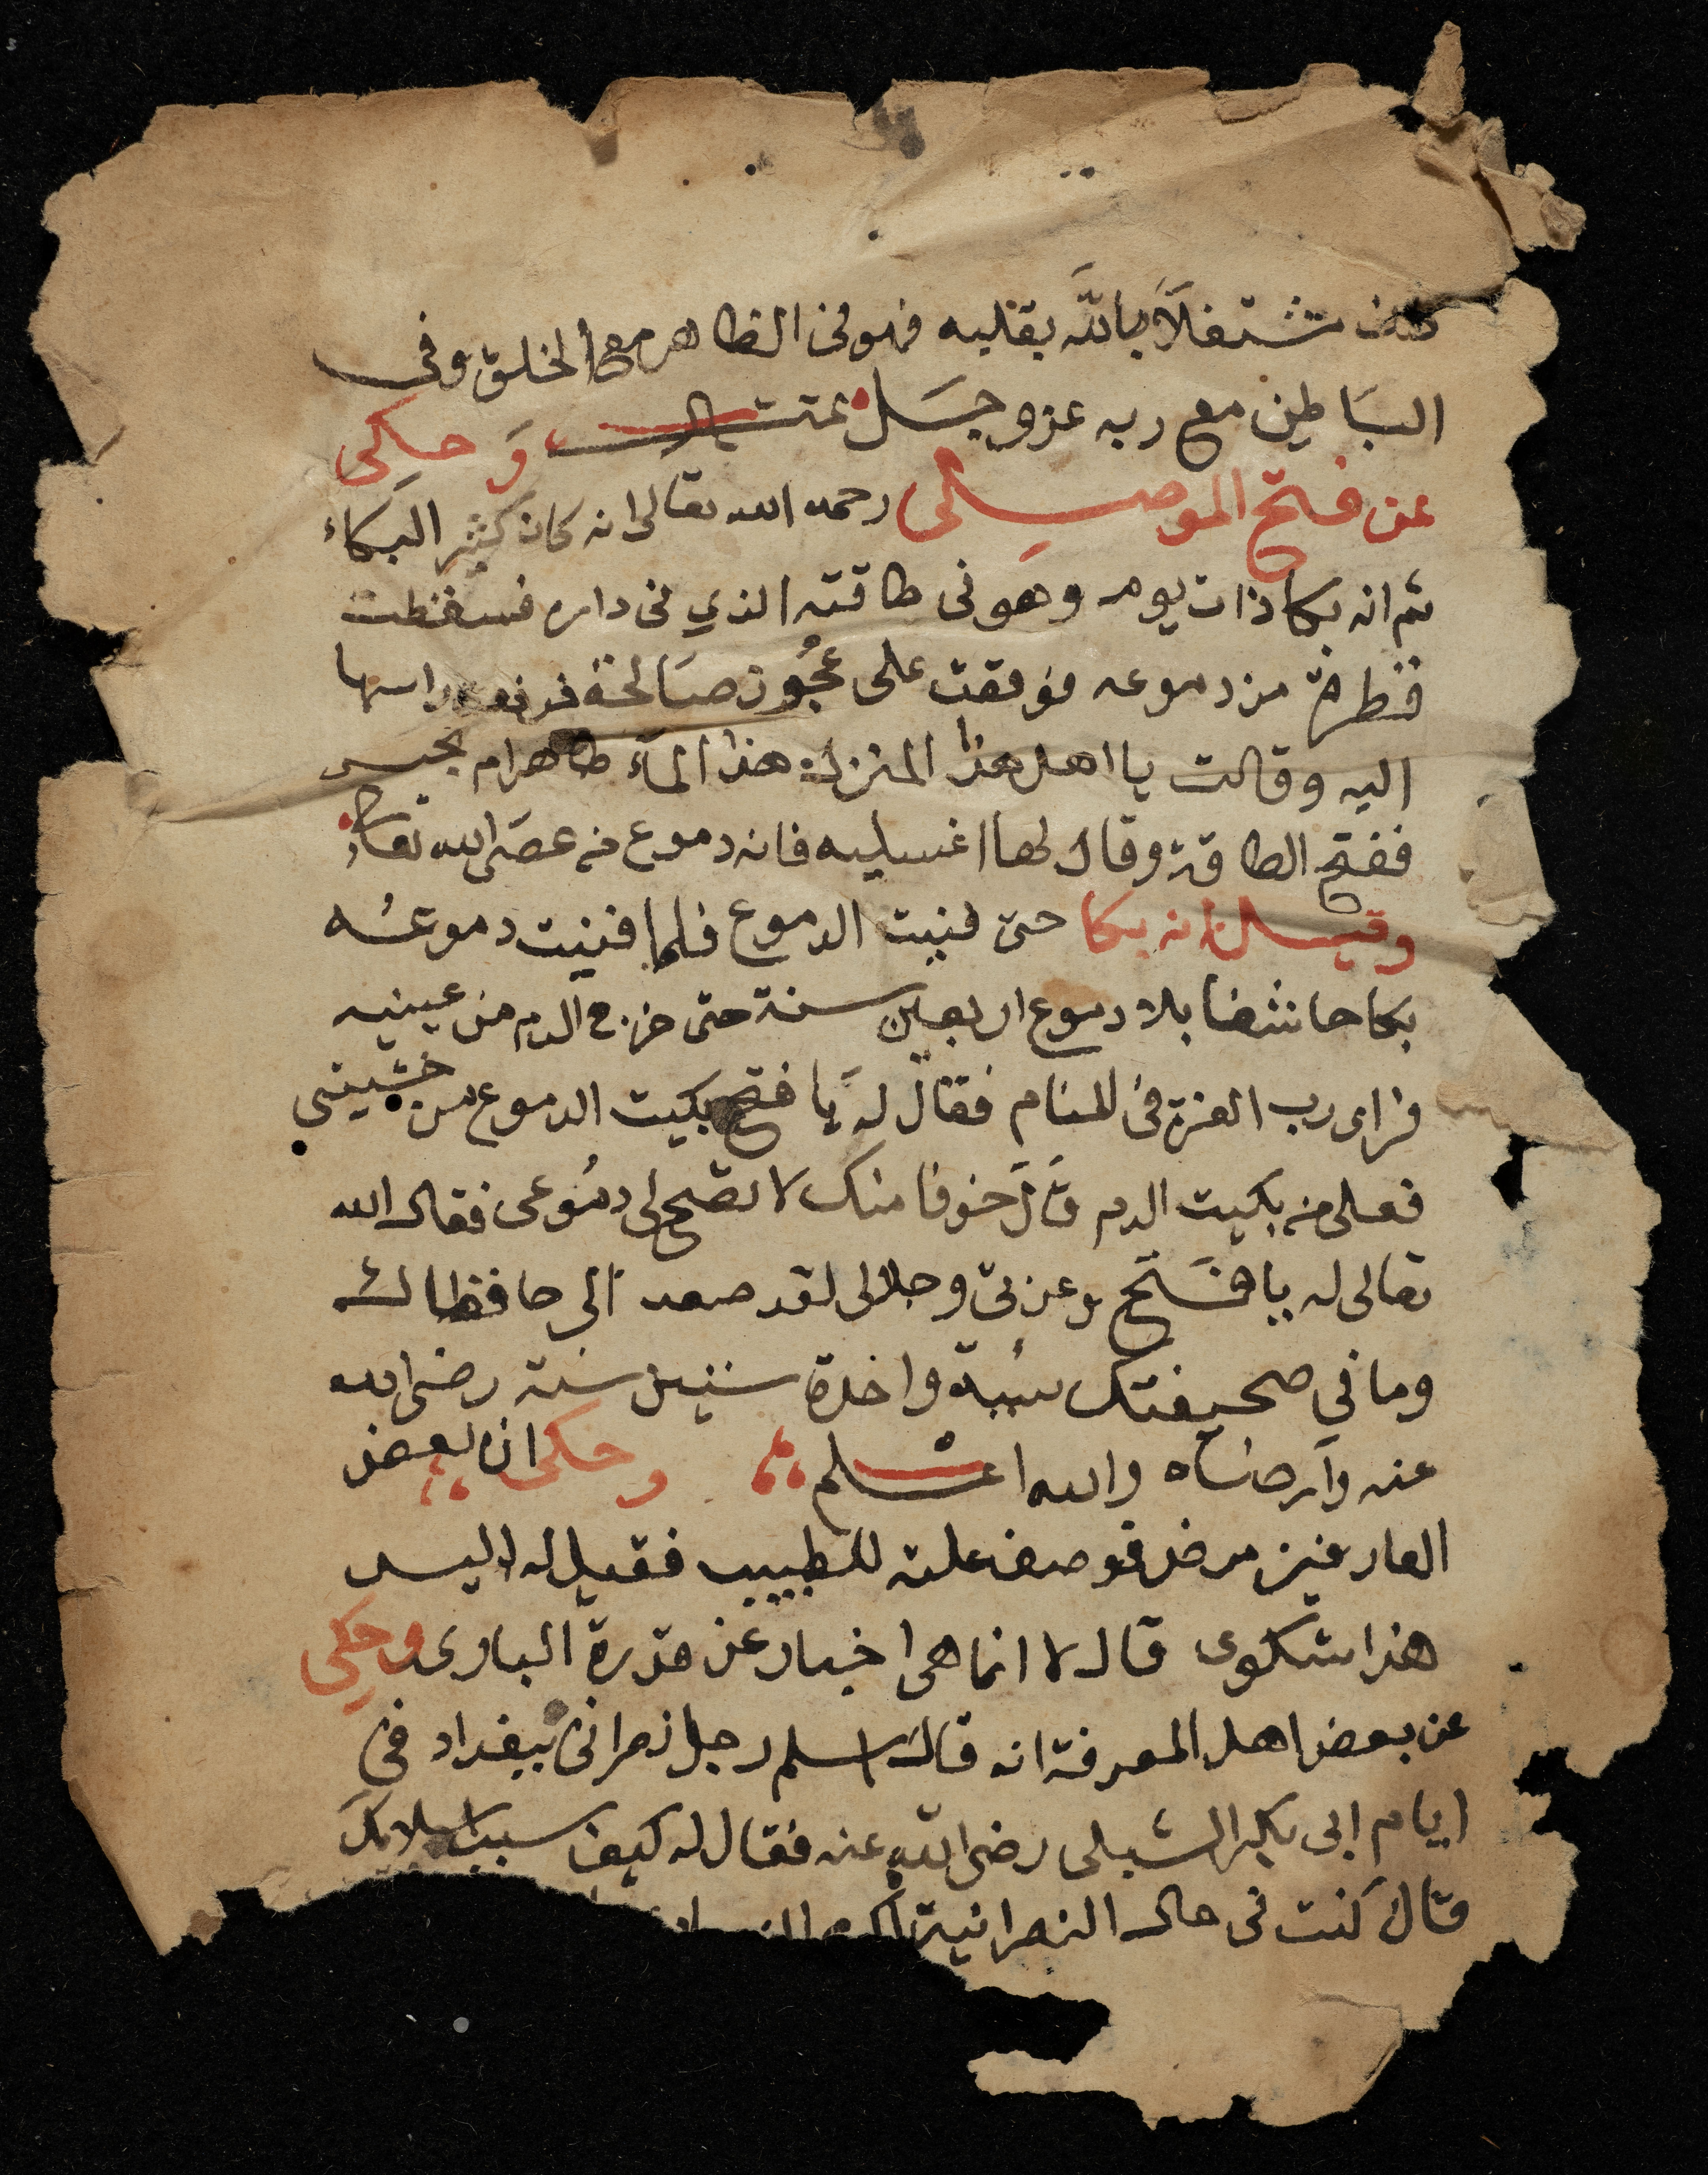 مشتغلًا بالله بقلبه فهو في الظاهر مع الخلق وفى
البَاطن مع ربه عز وجَل تمت وَحكى
عن فتح الموصلى رحمه الله تعالى انه كان كثير البكاء
ثم انه بكا ذات يوم وهو فى طاقته الذي فى داره فسقطت
قطرة من دموعه فوقعت على عجُوز صَالحة فرفعت راسها
اليه وقالت يا اهل هذا المنزل هذا المآء طاهر ام نجس
ففتح الطاقة وقال لها اغسليه فانه دموع من عصَى الله تعالى
وقيل انه بكا حتى فنيت الدموع فلما فنيت دموعُه
بكا بلا دموع اربعين سنة حتى خرج الدم من عينيه
فراى رب العزة فى المنام فقال لَه يَا فتح بكيت الدموع من خشيتى
فعلى من بكيت الدم قَالَ خوفا منك لا تصح لى دمُوعى فقال الله
تعالى له يا فَتح وعزتى وجلالى لقد صعد الى حافظاك
وما في صحيفتك سيئة واحدة ستين سنة رضى الله
عنه وآرضاه والله اعلم وحكى ان بعض
العارفين مرض فوصف علته للطبيب فقيل له اليس
هذا شكوى قال لا انما هى اخبار عن قدرة البارى وحكي
عن بعض اهل المعرفة انه قال اسلم رجل نصرانى ببغداد فى
ايام ابى بكر الشبلى رضى الله عنه فقال له كيف سبب اسلامك
قال كنت فى حال النصرانية